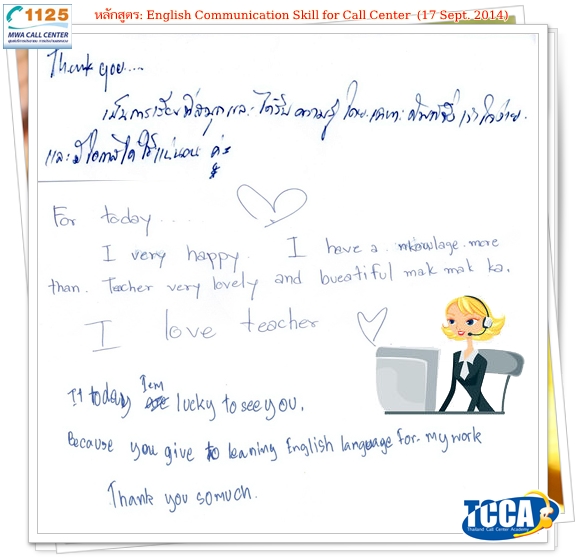 1125
MWA CALL CENTER
หลักสูตร: English Communication Skill for Call Center (17 Sept. 2014)
Thank you....
เป็นการเรียนที่สนุกและได้รับความรู้ โดยเฉพาะศัพท์ที่เข้าใจง่าย
และมีโอกาสได้ใช้แน่นอน ค่ะ
For today.....
I very happy. I have a . more
than. Teacher very lovely and bueatiful mak mak ka.
I love teacher
It today lucky to see you.
Because you give to leaning English language for. my work
Thank you so much.
TCCA
Thailand Call Center Academy